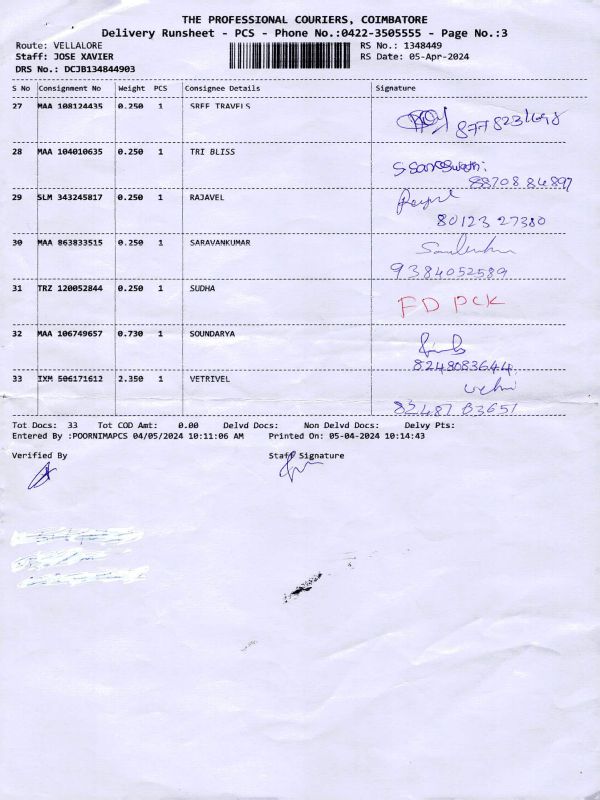 THE PROFESSIONAL COURIERS, COIMBATORE
Delivery Runsheet - PCS - Phone No.:0422-3505555 - Page No.:3
Route: VELLALORE RS No.: 1348449
Staff: JOSE XAVIER RS Date: 05-Apr-2024
DRS No.: DCJB134844903
S No Consignment No Weight PCS Consignee Details Signature
27 MAA 108124435 0.250 1 SREE TRAVELS
28 MAA 104010635 0.250 1 TRI BLISS
88708 84897
29 SLM 343245817 0.250 1 RAJAVEL
80123 27380
30 MAA 863833515 0.250 1 SARAVANKUMAR
9384052589
31 TRZ 120052844 0.250 1 SUDHA FD PCK
32 MAA 106749657 0.730 1 SOUNDARYA
8248083644
33 IXM 506171612 2.350 1 VETRIVEL
82487 03651
Tot Docs: 33 Tot COD Amt: 0.00 Delvd Docs: Non Delvd Docs: Delvy Pts:
Entered By :POORNIMAPCS 04/05/2024 10:11:06 AM Printed On: 05-04-2024 10:14:43
Verified By Staff Signature